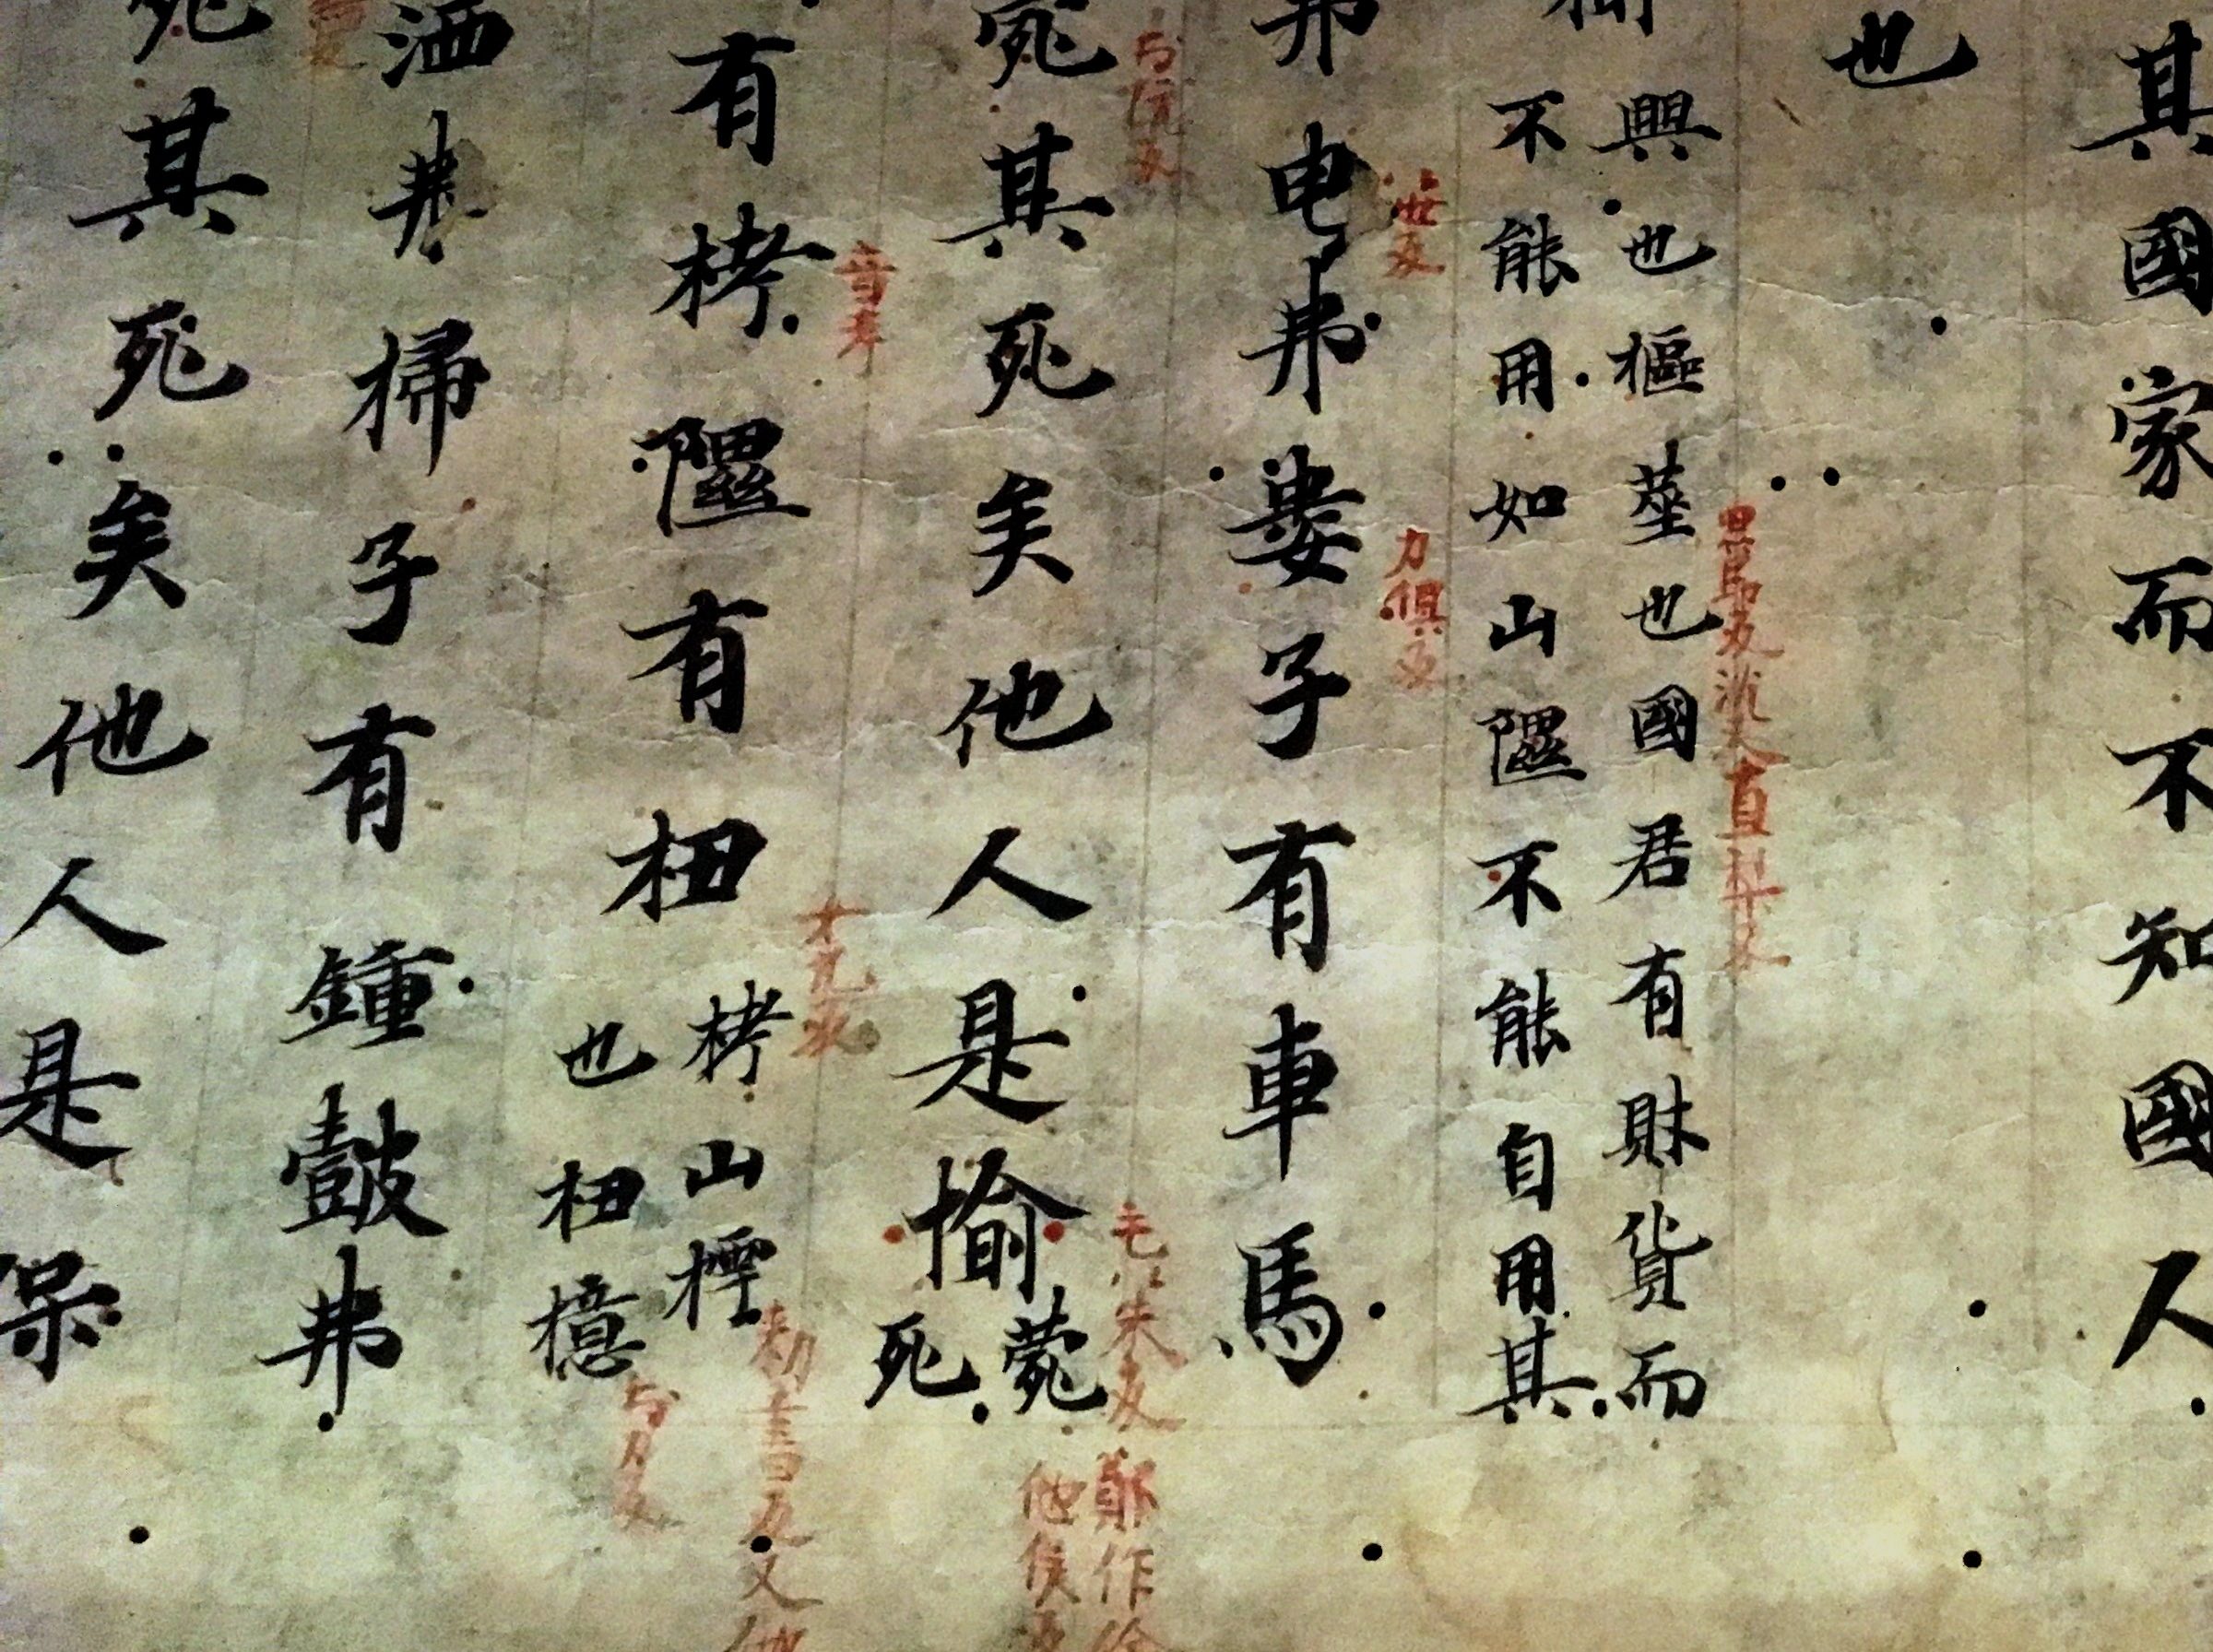 其國家而不知國人
也
田節反沈又直梨反
興也樞荎也國君有財貨而
不能用如山隰不能自用其
世反
力俱反
弗曳弗婁子有車馬
於阮反
毛以朱反鄭作偷
他侯反
宛其死矣他人是愉菀
死
音考
女九反
勑書反又他
有栲隰有杻栲山樗
也杻檍
於力反
洒弗掃子有鍾鼓弗
宛其死矣他人是保